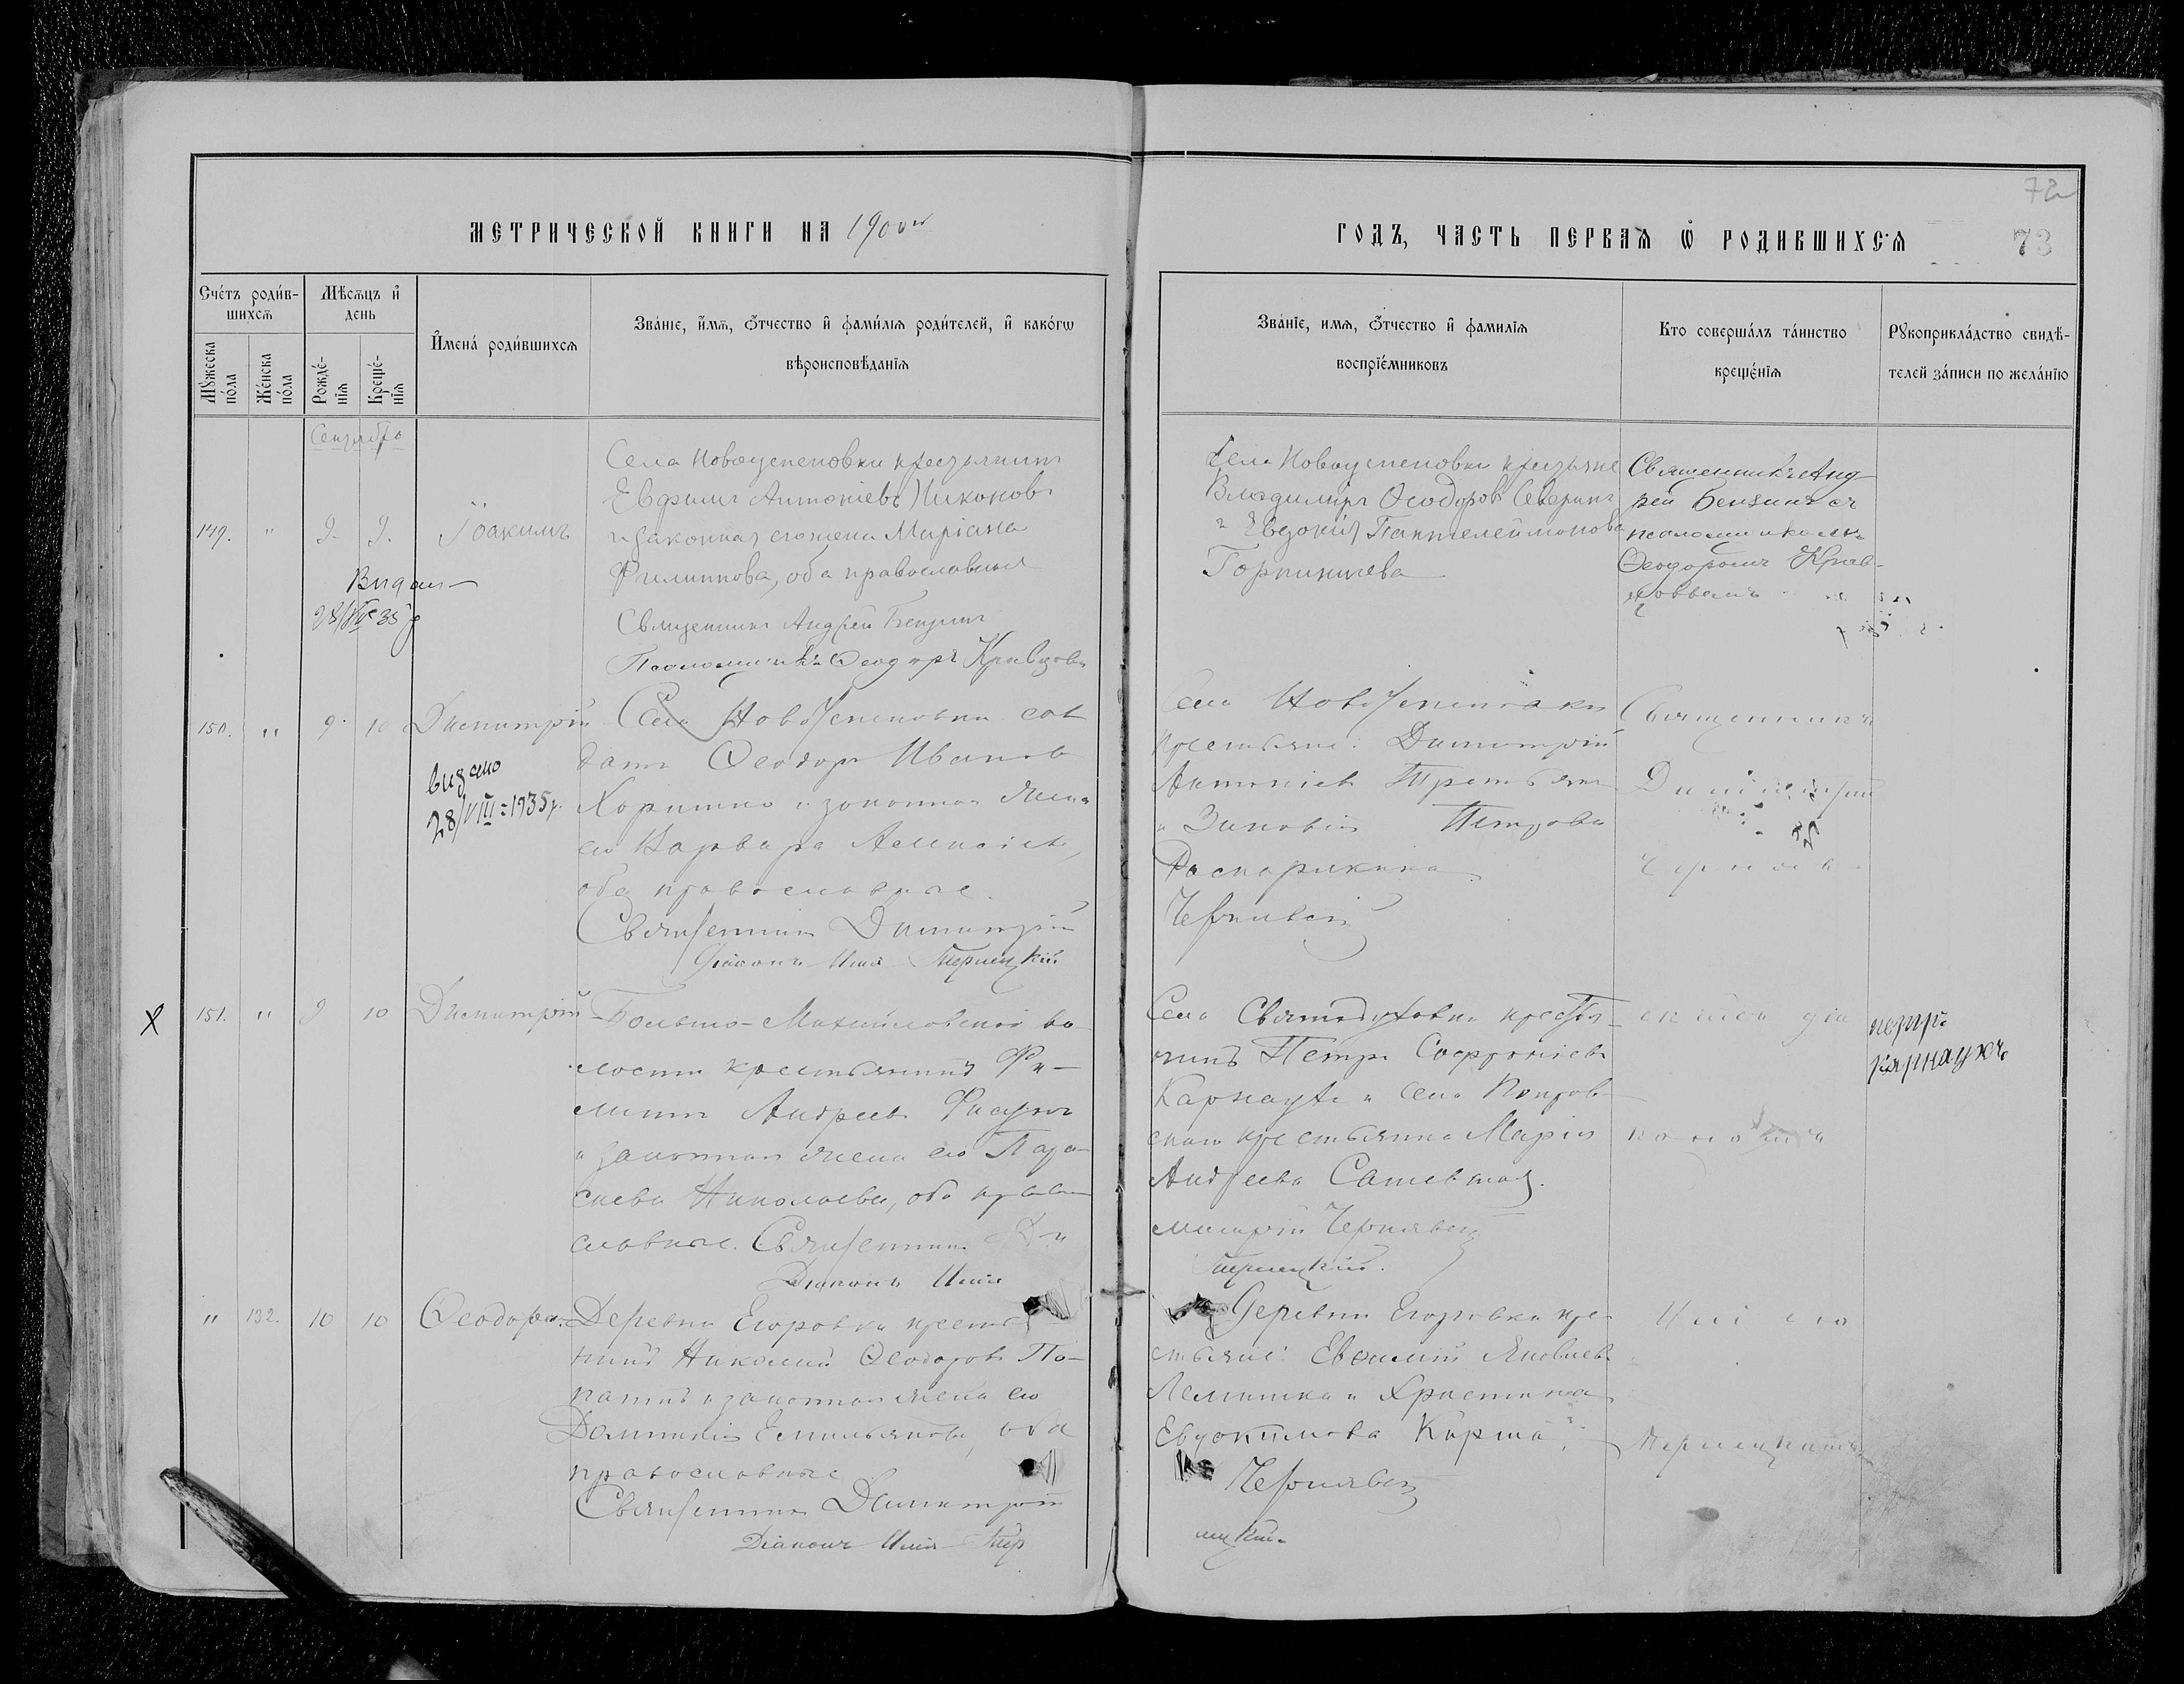 72
МЕТРИЧЕСКОЙ КНИГИ НА 1900й
ГОДЪ, ЧАСТЬ ПЕРВАЯ Ѡ РОДИВШИХСЯ
73
Счетъ родив-
шихся
Мѣсяцъ и
день
Мужеска
пола
Женска
пола
Рожде-
нія
Креще-
нія
Имена родившихся
Званіе, имя, отчество и фамилія родителей, и какогѡ
вѣроисповѣданія
Званіе, имя, отчество и фамилія
воспріемниковъ
Кто совершалъ таинство
крещенія
Рукоприкладство свидѣ-
телей записи по желанію
Сентябрь
149. " 9. 9. Іоакимъ
Села Новоуспеновки крестьянинъ
Евфимъ Антоніевъ Никоновъ
и законная его жена Маріана
Филиппова, оба православные
Священникъ Андрей Бензинъ
Псаломщикъ Ѳеодоръ Кравцовъ
Видан
28/VIII 35 р
Села Новоуспеновки крестьяне
Владимиръ Ѳеодоровъ Северинъ
и Евдокія Пантелеймонова
Горпиничева
Священникъ Анд
рей Бензинъ съ
псаломщикомъ
Ѳеодоромъ Крав-
цовымъ
150. " 9. 10 Димитрій
Села Новоуспеновки сол
датъ Ѳеодоръ Ивановъ
и законная жена
его Варвара Алексіева,
оба православные.
Священникъ Димитрій
Діаконъ Илія Терлецкій
видано
28/VIII=1935р.
Села Новоуспеновки
крестьяне: Димитрій
Антоніевъ Третьякъ
и Зиновія Петрова
Чернявскій
Священникъ
Димитрій
151. " 9 10 Димитрій
Больше-Михайловской во-
лости крестьянинъ Фи-
липпъ Андреевъ Фисунъ
и законная жена его Пара-
скева Николаева, оба право
славные. Священникъ Ди
Діаконъ Илія
Села Святодуховки крестья-
нинъ Петръ Софроніевъ
Карнаухъ и села Покров
скаго крестьянка Марія
Андреева
митрій Чернявскій
Терлецкій.
петръ
карнаухъ
" 132. 10 10 Ѳеодора
Деревни Егоровки крестья
нинъ Николай Ѳеодоровъ Ло-
патинъ и законная жена его
Домникія Емельянова, оба
православные
Священникъ Димитрій
Діаконъ Илія Тер
Деревни Егоровки кре
стьяне: Евѳимій Яковлевъ
и Христина
Евдокимова Кирша
Чернявскій
лецкій.
Иліею
Терлецкимъ